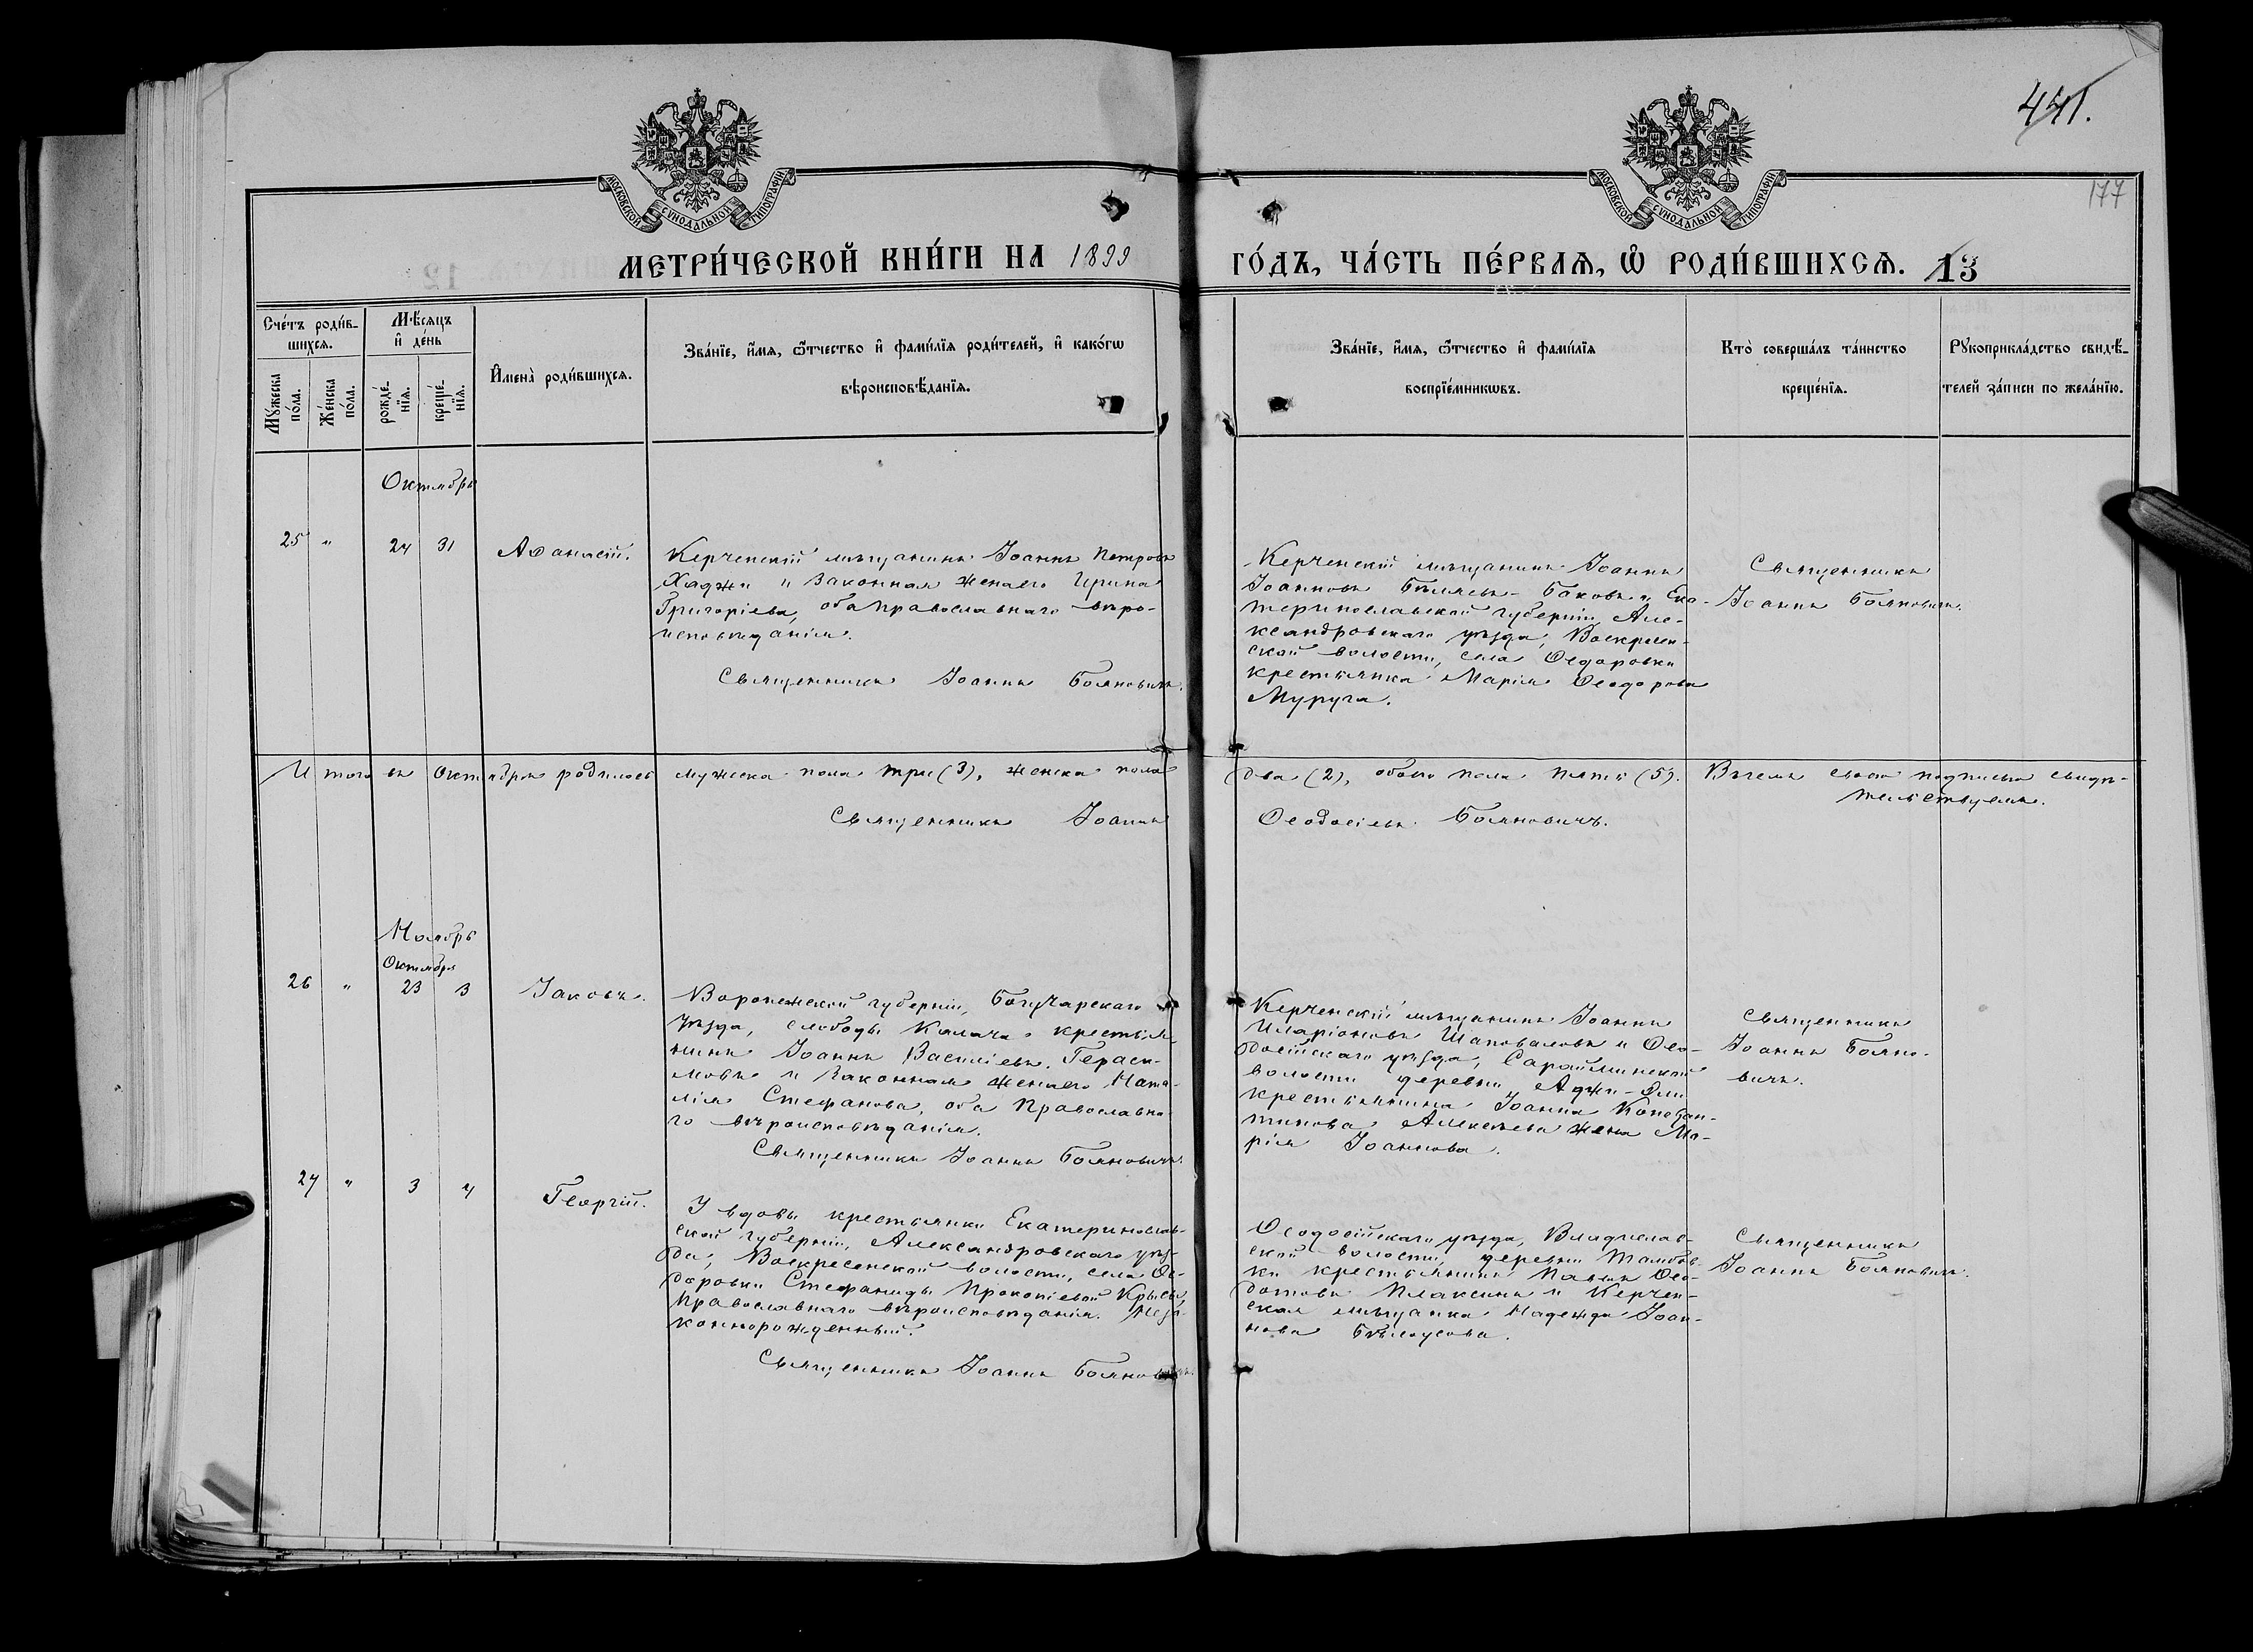 441.
177
МОСКОВСКОЙ СѴНОДАЛЬНОЙ ТИПОГРАФІИ
МОСКОВСКОЙ СѴНОДАЛЬНОЙ ТИПОГРАФІИ
МЕТРИ́ЧЕСКОЙ КНИ́ГИ НА 1899
ГО́ДЪ, ЧА́СТЬ ПЕ́РВАЯ, Ѡ РОДИ́ВШИХСЯ. 13
Сче́тъ роди́в-
шихся.
Мꙋ́жеска
по́ла.
Же́нска
по́ла.
Мѣ́сяцъ
и҆ де́нь
рожде́-
нїѧ.
креще́-
нїѧ.
И҆мена̀ роди́вшихся.
Зва́нїе, и҆́мѧ, ѻ҆́тчество и҆ фами́лїѧ роди́телей, и҆ како́гѡ
вѣроисповѣ́данїѧ.
Зва́нїе, и҆́мѧ, ѻ҆́тчество и҆ фами́лїѧ
воспрїе́мникѡвъ.
Кто̀ соверша́лъ та́инство
креще́нїѧ.
Рꙋкоприкла́дство свидѣ́-
телей за́писи по жела́нїю.
Октябрь
25 " 24 31 Аѳанасій.
Керченскій мѣщанинъ Іоаннъ Петровъ
Хаджи и законная жена его Ирина
Григоріева, оба православнаго вѣро-
исповѣданія.
Священникъ Іоаннъ Бояновичъ.
Керченскій мѣщанинъ Іоаннъ
Іоанновъ Бѣляевъ-Баковъ и Ека-
теринославской губерніи, Але-
ксандровскаго уѣзда, Воскресен-
ской волости, села Ѳедоровки
крестьянка Марія Ѳеодорова
Муруга.
Священникъ
Іоаннъ Бояновичъ.
Итого въ Октябрѣ родилось мужеска пола три (3), женска пола
два (2), обоего пола пять (5). Въ чемъ своею подписью свидѣ-
тельствуемъ.
Священникъ Іоаннъ
Ѳеодосіевъ Бояновичъ.
Ноябрь
Октября
26 " 23 3 Іаковъ.
Воронежской губерніи, Богучарскаго
уѣзда, слободы Калача крестья-
нинъ Іоаннъ Василіевъ Гераси-
мовъ и законная жена его Ната-
лія Стефанова, оба православна-
го вѣроисповѣданія.
Священникъ Іоаннъ Бояновичъ.
Керченскій мѣщанинъ Іоаннъ
Иларіоновъ Шаповаловъ и Ѳео-
досійскаго уѣзда, Сарайминской
волости деревни Аджи-Эли
крестьянина Іоанна Констан-
тинова Алексѣева жена Ма-
рія Іоаннова.
Священникъ
Іоаннъ Бояно-
вичъ.
27 " 3 4 Георгій.
У вдовы крестьянки Екатеринослав-
ской губерніи, Александровскаго уѣз-
да, Воскресенской волости, села Ѳе-
доровки Стефаниды Прокопіевой
Православнаго вѣроисповѣданія. Неза-
коннорожденный.
Священникъ Іоаннъ Бояновичъ.
Ѳеодосійскаго уѣзда, Владислав-
ской волости, деревни Тамбов-
ки крестьянинъ Павелъ Ѳео-
дотовъ Плаксинъ и Керчен-
ская мѣщанка Надежда Іоан-
нова Бѣлоусова.
Священникъ
Іоаннъ Бояновичъ.